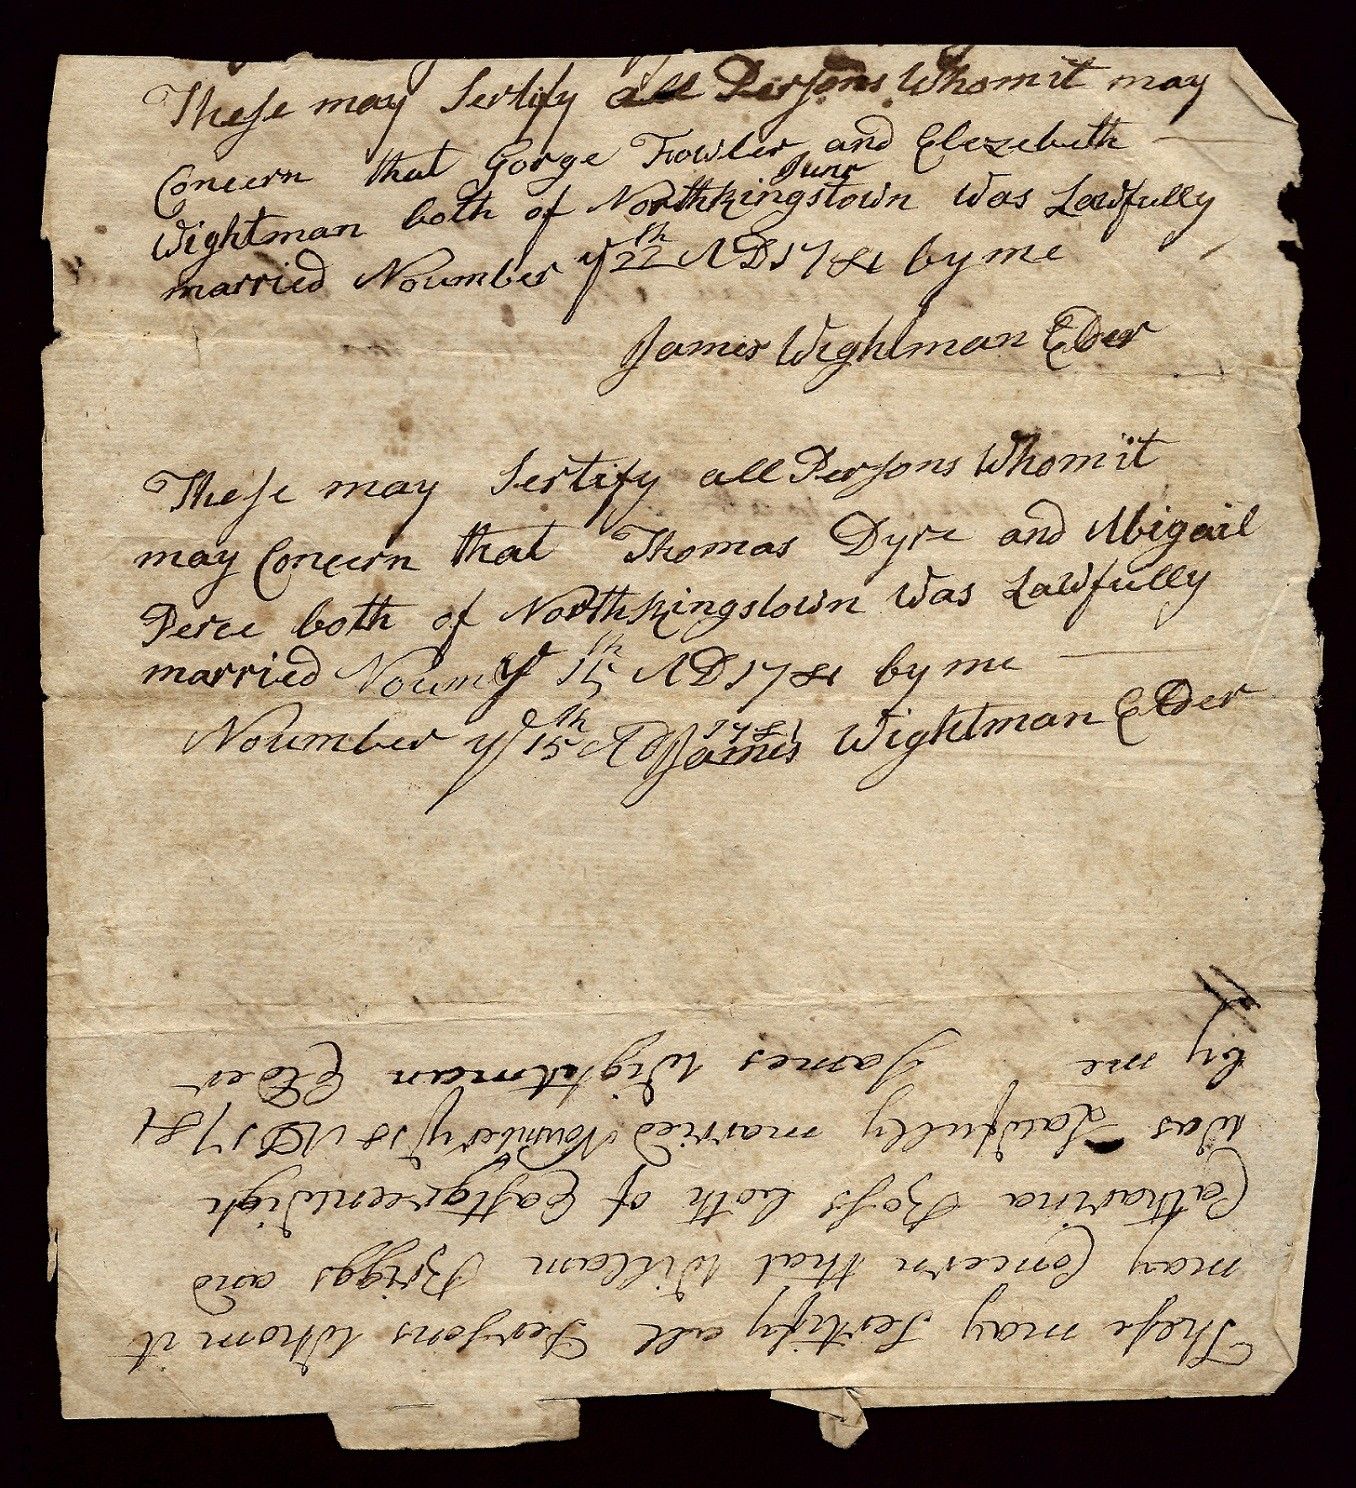 These may Sertify all Persons Whom it may
Concern that Gorge Fowler and Elezebeth
Junr
Wightman both of Northkingstown Was Lawfully
married Noumber ye 22th AD 1781 by me
James Wightman Elder
These may Sertify all Persons Whom it
may Concern that Thomas Dyre and Abigail
Perce both of Northkingstown Was Lawfully
married Noumr ye 15th AD 1781 by me
Noumber ye 15th AD 1781 James Wightman Elder
These may Sertify all Persons Whom it
may Concern that Wiliam Briggs and
Catharina Boss both of Eastgreenwigh
Was Lawfully married Noumber ye 18 AD 1781
by me James Wightman Elder